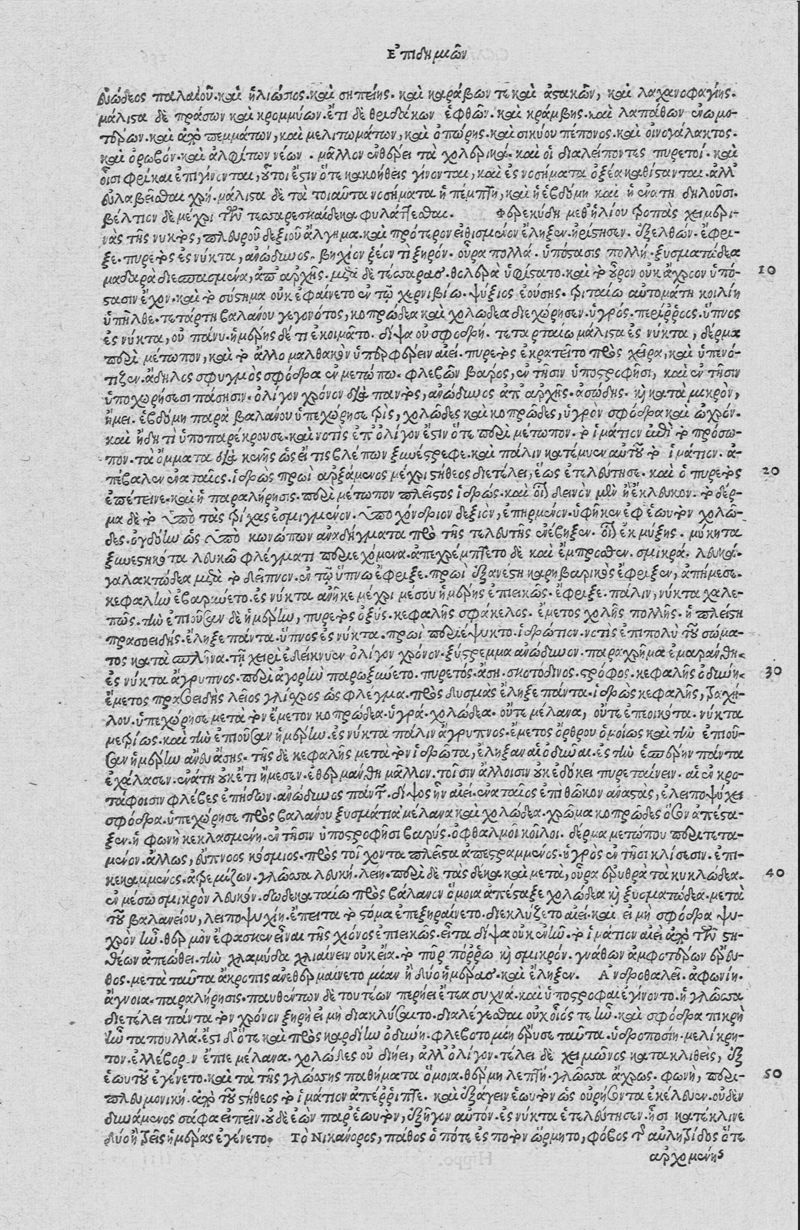 Ἐπιδημιῶν
βυώδεος παλαιοῦ. καὶ ἡλιώσιος. καὶ σηπείης. καὶ καράβων τε καὶ ἀστακῶν, καὶ λαχανοφαγίης.
μάλιστα δὲ πράσων καὶ κρομμύων. ἔτι δὲ θριδάκων ἑφθῶν. καὶ κράμβης. καὶ λαπάθων ἐνωμο-
τέρων. καὶ ἀπὸ πεμμάτων, καὶ μελιτωμάτων, καὶ ὀπώρης. καὶ σικύου πέπονος. καὶ οἰνογάλακτος.
καὶ ὀρώβων. καὶ ἀλφίτων νέων. μᾶλλον ἐν θέρει τὰ χολερικά. καὶ οἱ διαλείποντες πυρετοί. καὶ
οἷσι φρῖκαι ἐπιγίνονται, οὗτοι ἔστιν ὅτε κακοήθεις γίνονται, καὶ ἐς νοσήματα ὀξέα καθίστανται. ἀλλ'
εὐλαβεῖσθαι χρή. μάλιστα δὲ τὰ τοιαῦτα νοσήματα ἡ πέμπτη, καὶ ἡ ἑβδόμη καὶ ἡ ἐνάτη δηλοῦσι.
βέλτιον δὲ μέχρι τῶν τεσσαρεσκαίδεκα φυλάττεσθαι. Φερεκύδη μεθ' ἡλίου τροπὰς χειμερι-
νὰς τῆς νυκτὸς, πλευροῦ δεξιοῦ ἄλγημα. καὶ πρότερον εἰθισμένον ἔληξεν. ἠρίστησεν. ἐξελθὼν. ἔφρι-
ξε. πυρετὸς ἐς νύκτα, ἀνώδυνος. βηχίον ξέον τι ξηρόν. οὖρα πολλά. ὑπόστασις πολλή. ξυσματώδεα
μαδαρὰ διεσπασμένα, ἀπ' ἀρχῆς. μετὰ δὲ τέσσαρας. θολερὰ ὑφίστατο. καὶ τὸ οὖρον οὐκ ἄχροον ὑπό- 10
στασιν ἔχον. καὶ τὸ σύστημα οὐκ ἐφαίνετο ἐν τῷ χερνιβίῳ. ψύξιος ἐούσης. τριταίῳ αὐτομάτη κοιλίη
ὑπῆλθε. τετάρτη βαλάνου γεγονότος, κοπρώδεα καὶ χολώδεα διεχώρησεν. ὑγρὸς. περίῤῥοος. ὕπνος
ἐς νύκτα, οὐ πάνυ. ἡμέρης δέ τι ἐκοιμᾶτο. δίψα οὐ σφοδρή. τεταρταίῳ μάλιστα ἐς νύκτα, δέρμα
περὶ μέτωπον, καὶ τὸ ἄλλο μαλθακὸν ὑπερφέρειν αἰεί. πυρετὸς ἐκρατεῖτο πρὸς χεῖρα, καὶ ὑπενό-
τιζεν. ἄδηλος σφυγμὸς σφόδρα ἐν μετώπῳ. φλεβῶν βάρος, ἐν τῇσιν ὑποστροφῇσι, καὶ ἐν τῇσιν
ὑποχωρήσεσι πάσῃσιν. ὀλίγον χρόνον διὰ παντὸς, ἀνώδυνος ἀπ' ἀρχῆς. ἀσώδης. καὶ κατὰ μικρὸν,
ἤμει. ἑβδόμη παρὰ βαλάνου ὑπεχώρησε τρὶς, χολώδες καὶ κοπρῶδες, ὑγρὸν σφόδρα καὶ ὠχρόν.
καὶ ἤδη τὶ ὑποπαρέκρουσε. καὶ νοτὶς ἐπ' ὀλίγον ἔστιν ὅτε περὶ μέτωπον. τὸ ἱμάτιον ἐπὶ τὸ πρόσω-
πον. τὰ ὄμματα διὰ κενῆς ὡς εἴ τις βλέπων ξυνέστρεφε. καὶ πάλιν κατέμυεν αὐτοῦ τὸ ἱμάτιον. ἀ-
πέβαλεν ἐναταῖος. ἱδρὼς πρωῒ ἀρξάμενος μέχρι στήθεος διετέλει, ἕως ἐτελεύτησε. καὶ ὁ πυρετὸς 20
ἐπέτεινε. καὶ ἡ παραλήρησις. περὶ μέτωπον πλεῖστος ἱδρώς. καὶ οἷ δεινὸν μὲν ἢ ἔκλυκον. τὸ δέρ-
μα δὲ τὸ ὑπὸ τὰς τρίχας ἐσμιγμένον. ὑποχόνδριον δεξιὸν, ἐπηρμένον. ὑφῆκεν ἐφ' ἑωυτὸν χολῶ-
δες. ὀγδόῳ ὡς ὑπὸ κωνώπων ἀναδήγματα πρὸ τῆς τελευτῆς ἐνέβηξεν. οἷ ἐκ μύξης. μύκητα
ξυνεστηκότα λευκῷ φλέγματι περιεχόμενα. ἀπεχρέμπτετο δὲ καὶ ἔμπροσθεν. σμικρά. λευκά.
γαλακτώδεα μετὰ τὸ δεῖπνον. ἐν τῷ ὕπνῳ ἔφριξε. πρωῒ ἐξανέστη καρηβαρικὸς ἔφριξεν, ἀπήμεσε.
κεφαλὴν ἐβαρύνετο. ἐς νύκτα ἀνῆκε μέχρι μέσου ἡμέρης ἐπιεικῶς. ἔφριξε. πάλιν, νύκτα χαλε-
πῶς. τὴν ἐπιοῦσαν δὲ ἡμέρην, πυρετὸς ὀξύς. κεφαλῆς σφάκελος. ἔμετος χολῆς πολλῆς. ἡ πλείστη
πρασοειδής. ἔληξε πάντα. ὕπνος ἐς νύκτα. πρωῒ περιέψυκτο. ἱδρώτιον. νοτὶς ἐπιπολὺ τοῦ σώμα-
τος κατὰ σπλῆνα. τῇ χειρὶ ἐδείκνυεν ὀλίγον χρόνον. ξύστρεμμα ἀνώδυνον. παραχρῆμα ἐμαράνθη.
ἐς νύκτα ἄγρυπνος. περὶ ἀγορὴν παρωξύνετο. πυρετός. ἄση. σκοτόδινος. στρόφος. κεφαλῆς ὀδύνη. 30
ἔμετος πρασοειδὴς λεῖος γλίσχρος ὡς φλέγμα. πρὸς δυσμὰς ἔληξε πάντα. ἱδρὼς κεφαλῆς, τραχή-
λου. ὑπεχώρησε μετὰ τὸν ἔμετον κοπρώδεα. ὑγρά. χολώδεα. οὔτε μέλανα, οὔτε ἐπεοικότα. νύκτα
μετρίως. καὶ τὴν ἐπιοῦσαν ἡμέρην. ἐς νύκτα πάλιν ἄγρυπνος. ἔμετος ὄρθρου ὁμοίως καὶ τὴν ἐπιοῦ-
σαν ἡμέρην ἄνευ ἄσης. τῆς δὲ κεφαλῆς μετὰ τὸν ἱδρῶτα, ἔληξαν αἱ ὀδύναι. ἐς τὴν ἑσπέρην πάντα
ἐχάλασεν. ἐνάτη οὐκέτι ἤμεσεν. ἐθερμάνθη μᾶλλον. τοῖσιν ἄλλοισιν οὐκ ἐδόκει πυρεταίνειν. αἱ ἐν κρο-
τάφοισιν φλέβες ἐπήδων. ἀνώδυνος πάντη. δίψος ἦν αἰεί. ἐναταῖος ἐπὶ θῶκον ἀναστὰς, ἐλειποψύχει
σφόδρα. ὑπεχώρησε πρὸς βαλάνου ξυσμάτια μέλανα καὶ χολώδεα. χρῶμα κοπρῶδες ὅσον ἀπέστα-
ξεν. ἡ φωνὴ κεκλασμένη. ἐν τῇσιν ὑποστροφῇσι βαρύς. ὀφθαλμοὶ κοῖλοι. δέρμα μετώπου περιτετα-
μένον. ἄλλως, εὔπνοος κόσμιος. πρὸς τοίχον τὰ πλεῖστα ἀπεστραμμένος. ὑγρὸς ἐν τῇσι κλίσεσιν. ἐπι-
κεκαμμένος. ἀτρεμίζων. γλῶσσα λευκή. λείη. περὶ δὲ τὰς δέκα. καὶ μετὰ, οὖρα ἐρυθρὰ τὰ κυκλώδεα. 40
ἐν μέσῳ σμικρὸν λευκόν. δωδεκαταίῳ πρὸς βάλανον ὅμοια ἀπέσταξε χολώδεα καὶ ξυσματώδεα. μετὰ
τοῦ βαλανείου, λειποψυχίη. ἔπειτα τὸ στόμα ἐπεξηραίνετο. διεκλύζετο αἰεί. καὶ εἰ μὴ σφόδρα ψυ-
χρὸν ἦν. θερμὸν ἔφασκεν εἶναι τῆς χιόνος ἐπιεικῶς. εἶτα δίψα οὐκ ἐνῆν. τὸ ἱμάτιον αἰεὶ ἀπὸ τῶν στη-
θέων ἀπεώθει. τὴν χλαμύδα χλιαίνειν οὐκ εἴα. τὸ πῦρ πόῤῥω καὶ σμικρόν. γνάθων ἀμφοτέρων ἔρευ-
θος. μετὰ ταῦτα ἄκροπις ἀνεθερμαίνετο μίαν ἢ δύο ἡμέρας. καὶ ἔληξεν. Ἀνδροθαλεῖ. ἀφωνίη.
ἄγνοια. παραλήρησις. παυθέντων δὲ τουτέων περιῄει ἔτεα συχνά. καὶ ὑποστροφαὶ ἐγίνοντο. ἡ γλῶσσα
διετέλει πάντα τὸν χρόνον ξηρὴ εἰ μὴ διακλύζοιτο. διαλέγεσθαι οὐχ οἷός τε ἦν. καὶ σφόδρα πικρὴ
ἦν τὰ πουλλά. ἔστι δ' ὅτε καὶ πρὸς καρδίην ὀδύνη. φλεβοτομίη ἔρυσε ταῦτα. ὑδροποσίη. μελίκρη-
τον. ἐλλέβορον ἔπιε μέλανα. χολῶδες οὐ διῄει, ἀλλ' ὀλίγον. τέλει δὲ χειμῶνος κατακλιθεὶς, ἐξ
ἑωυτοῦ ἐγένετο. καὶ τὰ τῆς γλώσσης παθήματα ὅμοια. θέρμη λεπτή. γλῶσσα ἄχρως. φωνὴ, περι- 50
πλευμονική. ἀπὸ τοῦ στήθεος τὸ ἱμάτιον ἀπέῤῥιπτε. καὶ ἐξάγειν ἑωυτὸν ὡς οὐρήσοντα ἐκέλευεν. οὐδὲν
δυνάμενος σάφα εἰπεῖν. οὐδὲ ἐῶν παρ' ἑωυτὸν, ἐξῆγον αὐτόν. ἐς νύκτα ἐτελεύτησεν. ᾗσι κατέκλινε
δύο ἢ τρεῖς ἡμέρας ἐγένετο. Τὸ Νικάνορος, πάθος ὁπότε ἐς ποτὸν ὥρμητο, φόβος τῆς αὐλητρίδος ὅτε
ἀρχομένης